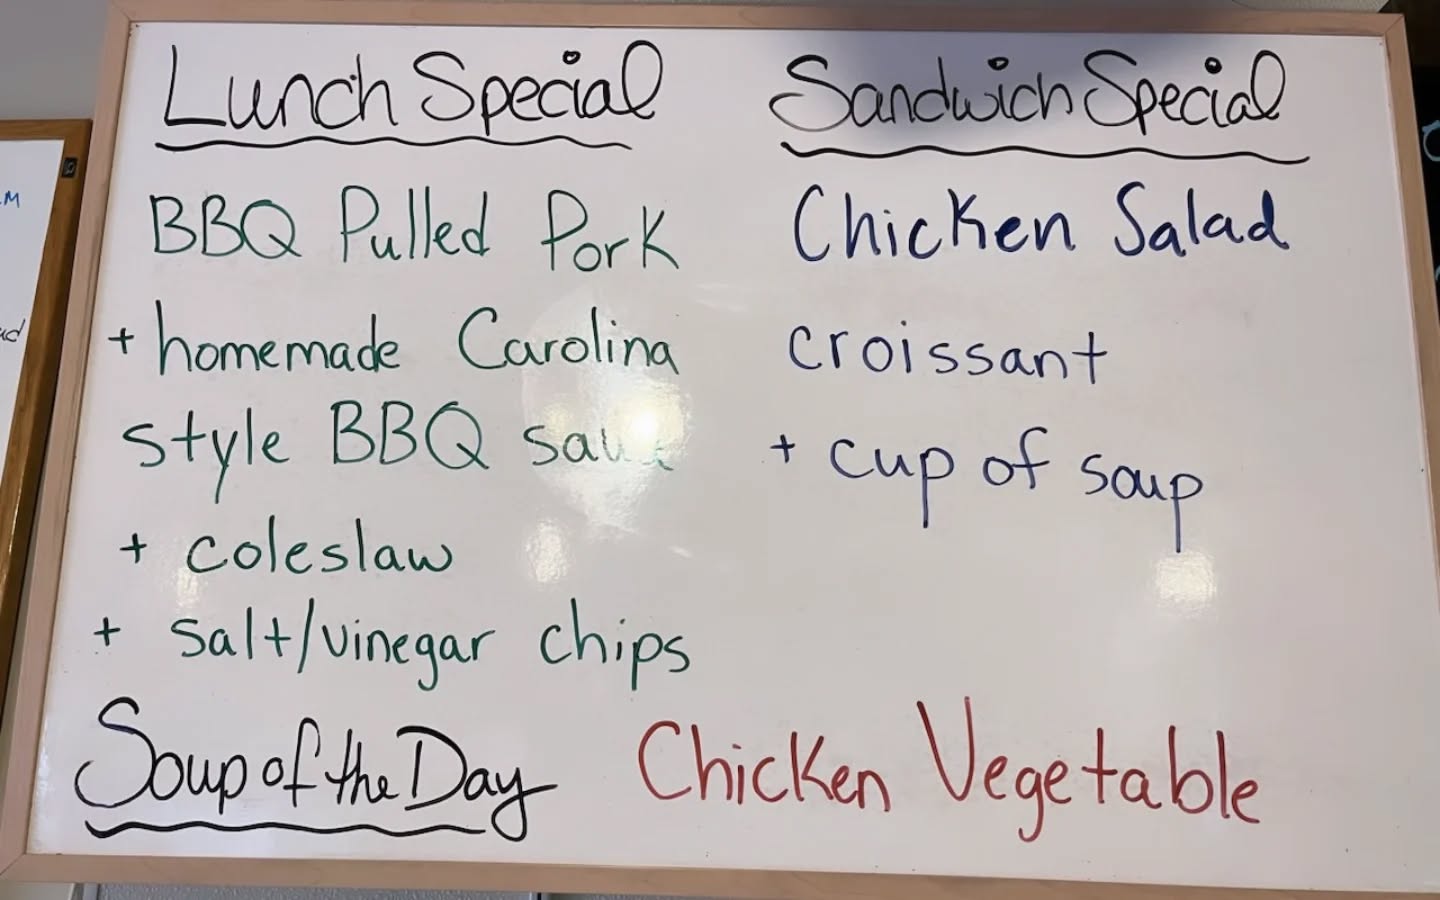 Lunch Special
BBQ Pulled Pork
+ homemade Carolina
style BBQ
+ coleslaw
+ salt/vinegar chips
Sandwich Special
Chicken Salad
croissant
+ cup of soup
Soup of the Day
Chicken Vegetable